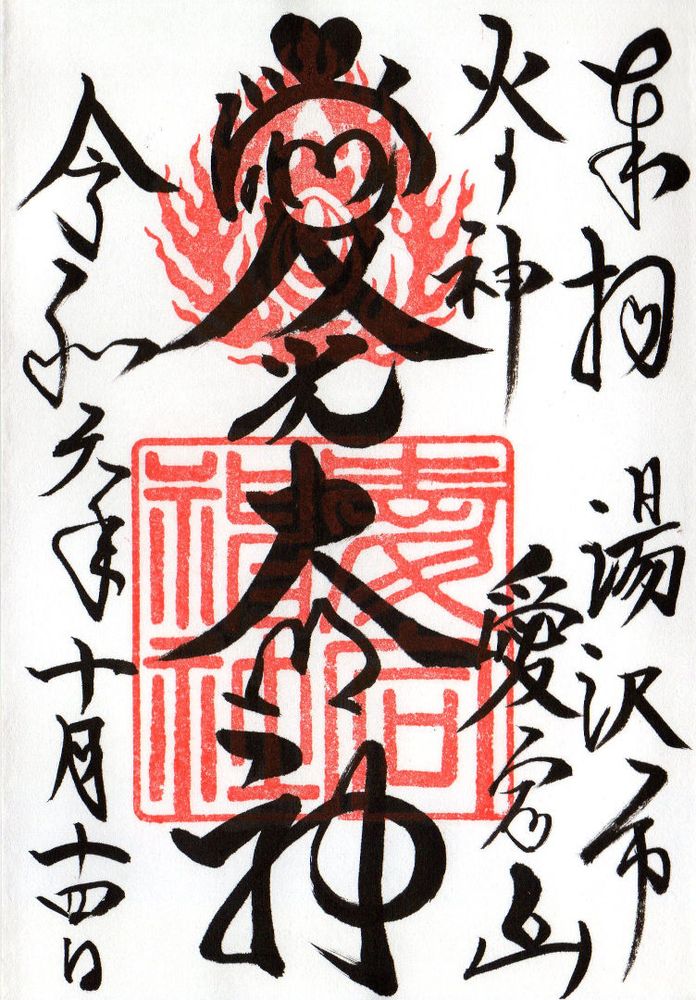 奉拝 湯沢市
火ノ神 愛宕山
愛光大明神
愛宕
神社
令和元年十月十四日